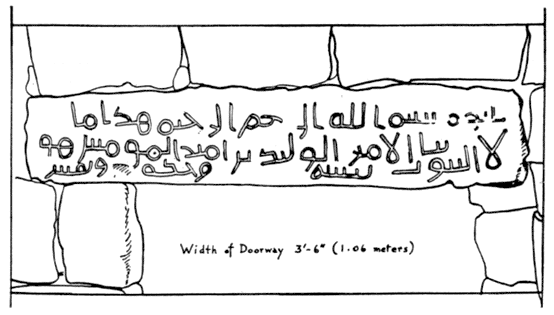 بسم الله الرحمن الرحيم هذا ما
بنا الامير الوليد بن امير المومنين هو
لا البيوت سنه
Width of Doorway 3'-6" (1.06 meters)